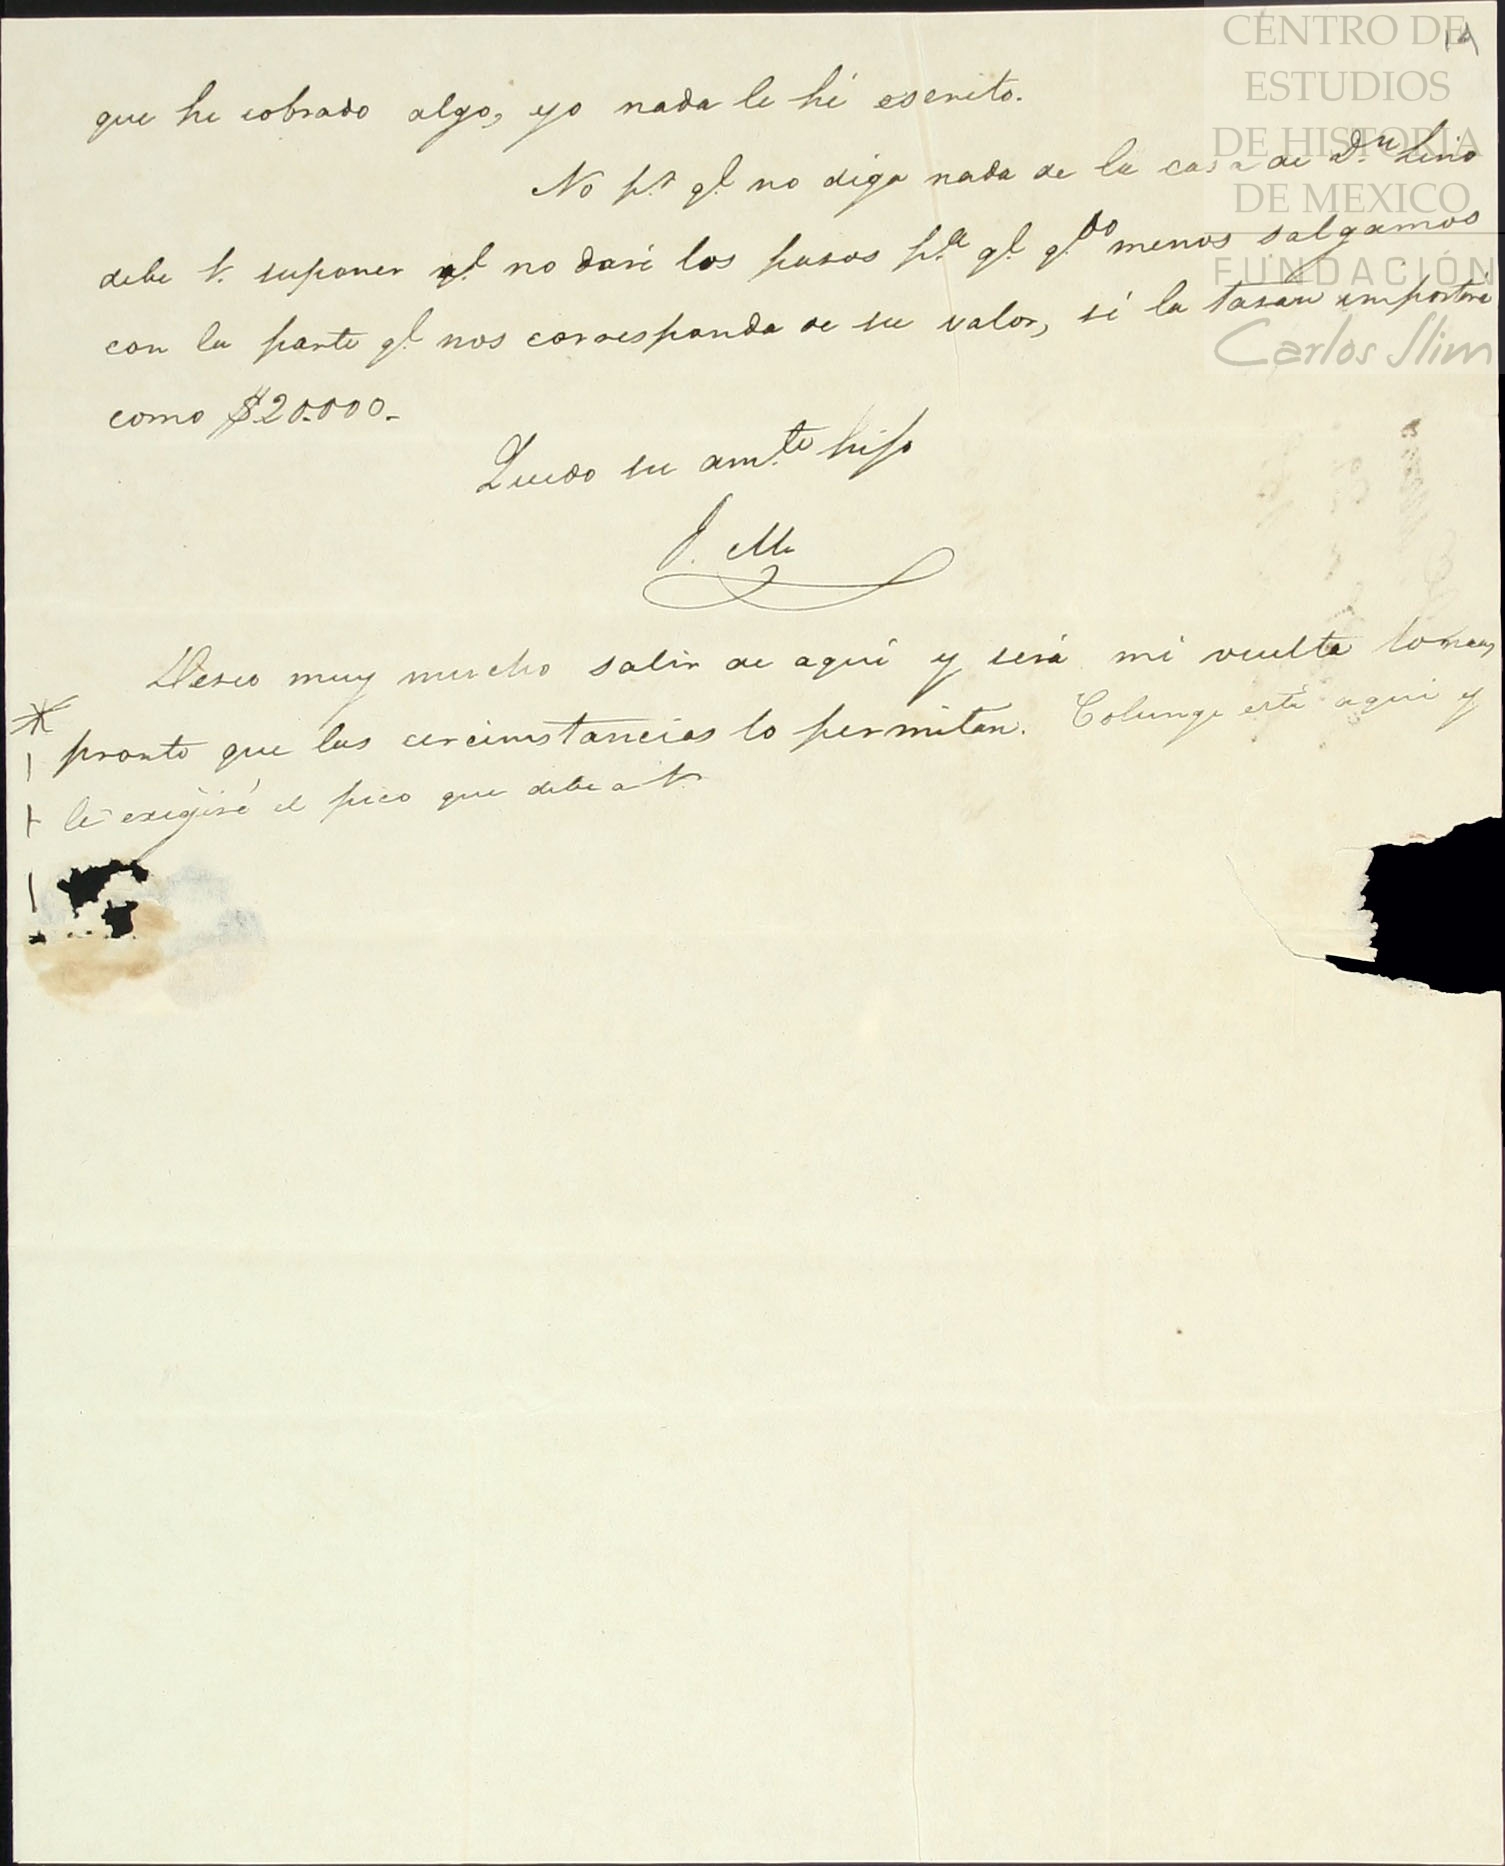 14
CENTRO DE
ESTUDIOS
DE HISTORIA
DE MEXICO
FUNDACIÓN
Carlos Slim
que he cobrado algo, yo nada le hé escrito.
No p.r q.e no diga nada de la casa de D.n Lino
debe V. suponer q.e no daré los pasos p.a q.e q.do menos salgamos
con la parte q.e nos corresponda de su valor, si la tasan importará
como $20.000-
Quedo su am.te hijo
J. M.
Deseo muy mucho salir de aquí y será mi vuelta lo mas
pronto que las circunstancias lo permitan. Colunga está aquí y
le exigiré el pico que debe a V.